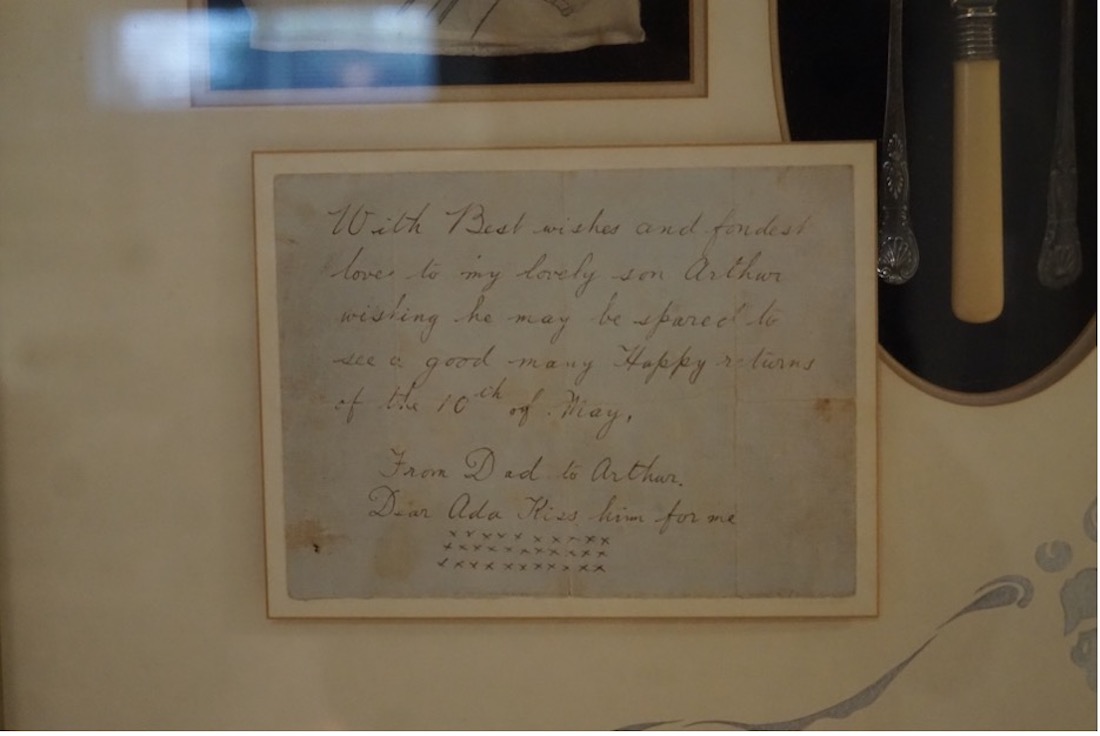 With Best wishes and fondest
love to my lovely son Arthur
wishing he may be spared to
see a good many Happy returns
of the 10th of May,
From Dad to Arthur.
Dear Ada Kiss him for me
x x x x x x x x x x
x x x x x x x x x x x
x x x x x x x x x x x